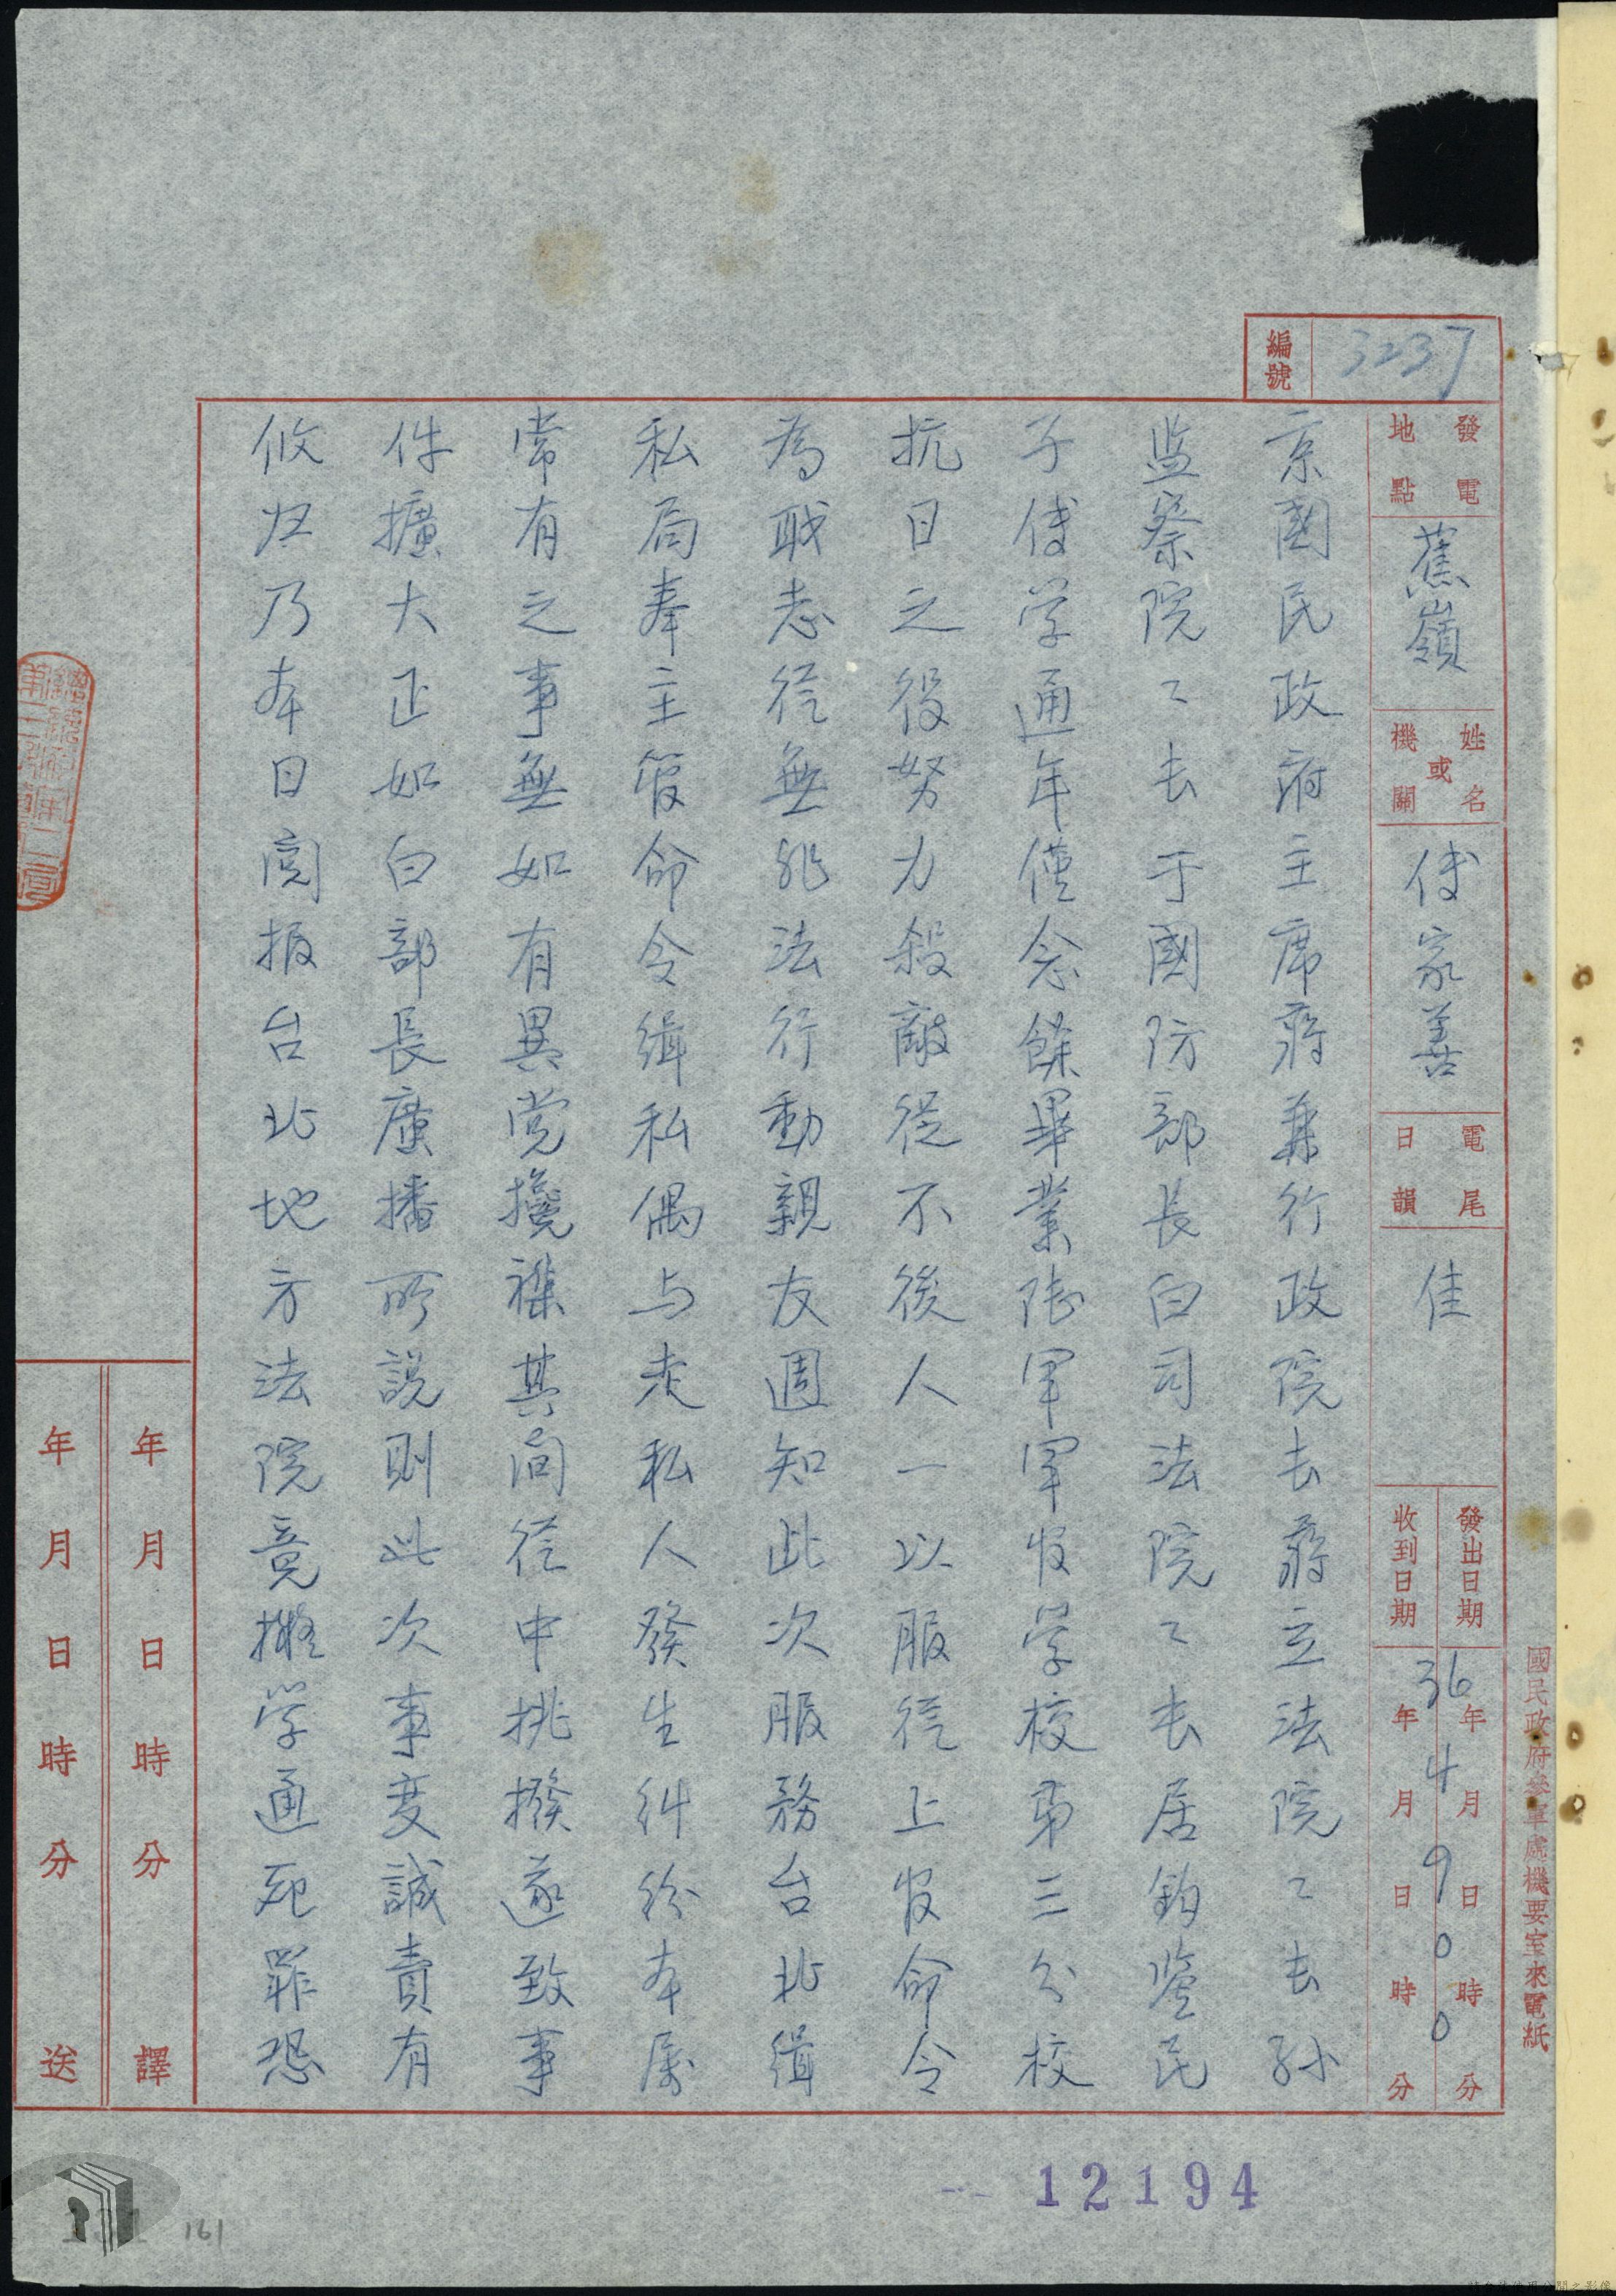 國民政府參軍處機要室來電紙
編號 3237
發電地點 蕉嶺
姓名或機關 傅家善
電尾日韻 佳
發出日期 年 月 日 時 分
收到日期 36年4月9日0時0分
京國民政府主席蔣兼行政院長蔣立法院々長孙
监察院々長于國防部長白司法院々長居鈞鑒民
子傅学通年僅念餘畢業陸軍軍官学校第三分校
抗日之役努力殺敵從不後人一以服從上官命令
為職志從無非法行動親友週知此次服務台北缉
私局奉主管命令缉私偶与走私人發生糾紛本屬
常有之事無如有異党攙襍其间從中挑撥遂致事
件擴大正如白部長廣播所説則此次事变誠責有
攸归乃本日阅报台北地方法院竟擬学通死罪恐
年月日時分譯
年月日時分送
12194
161